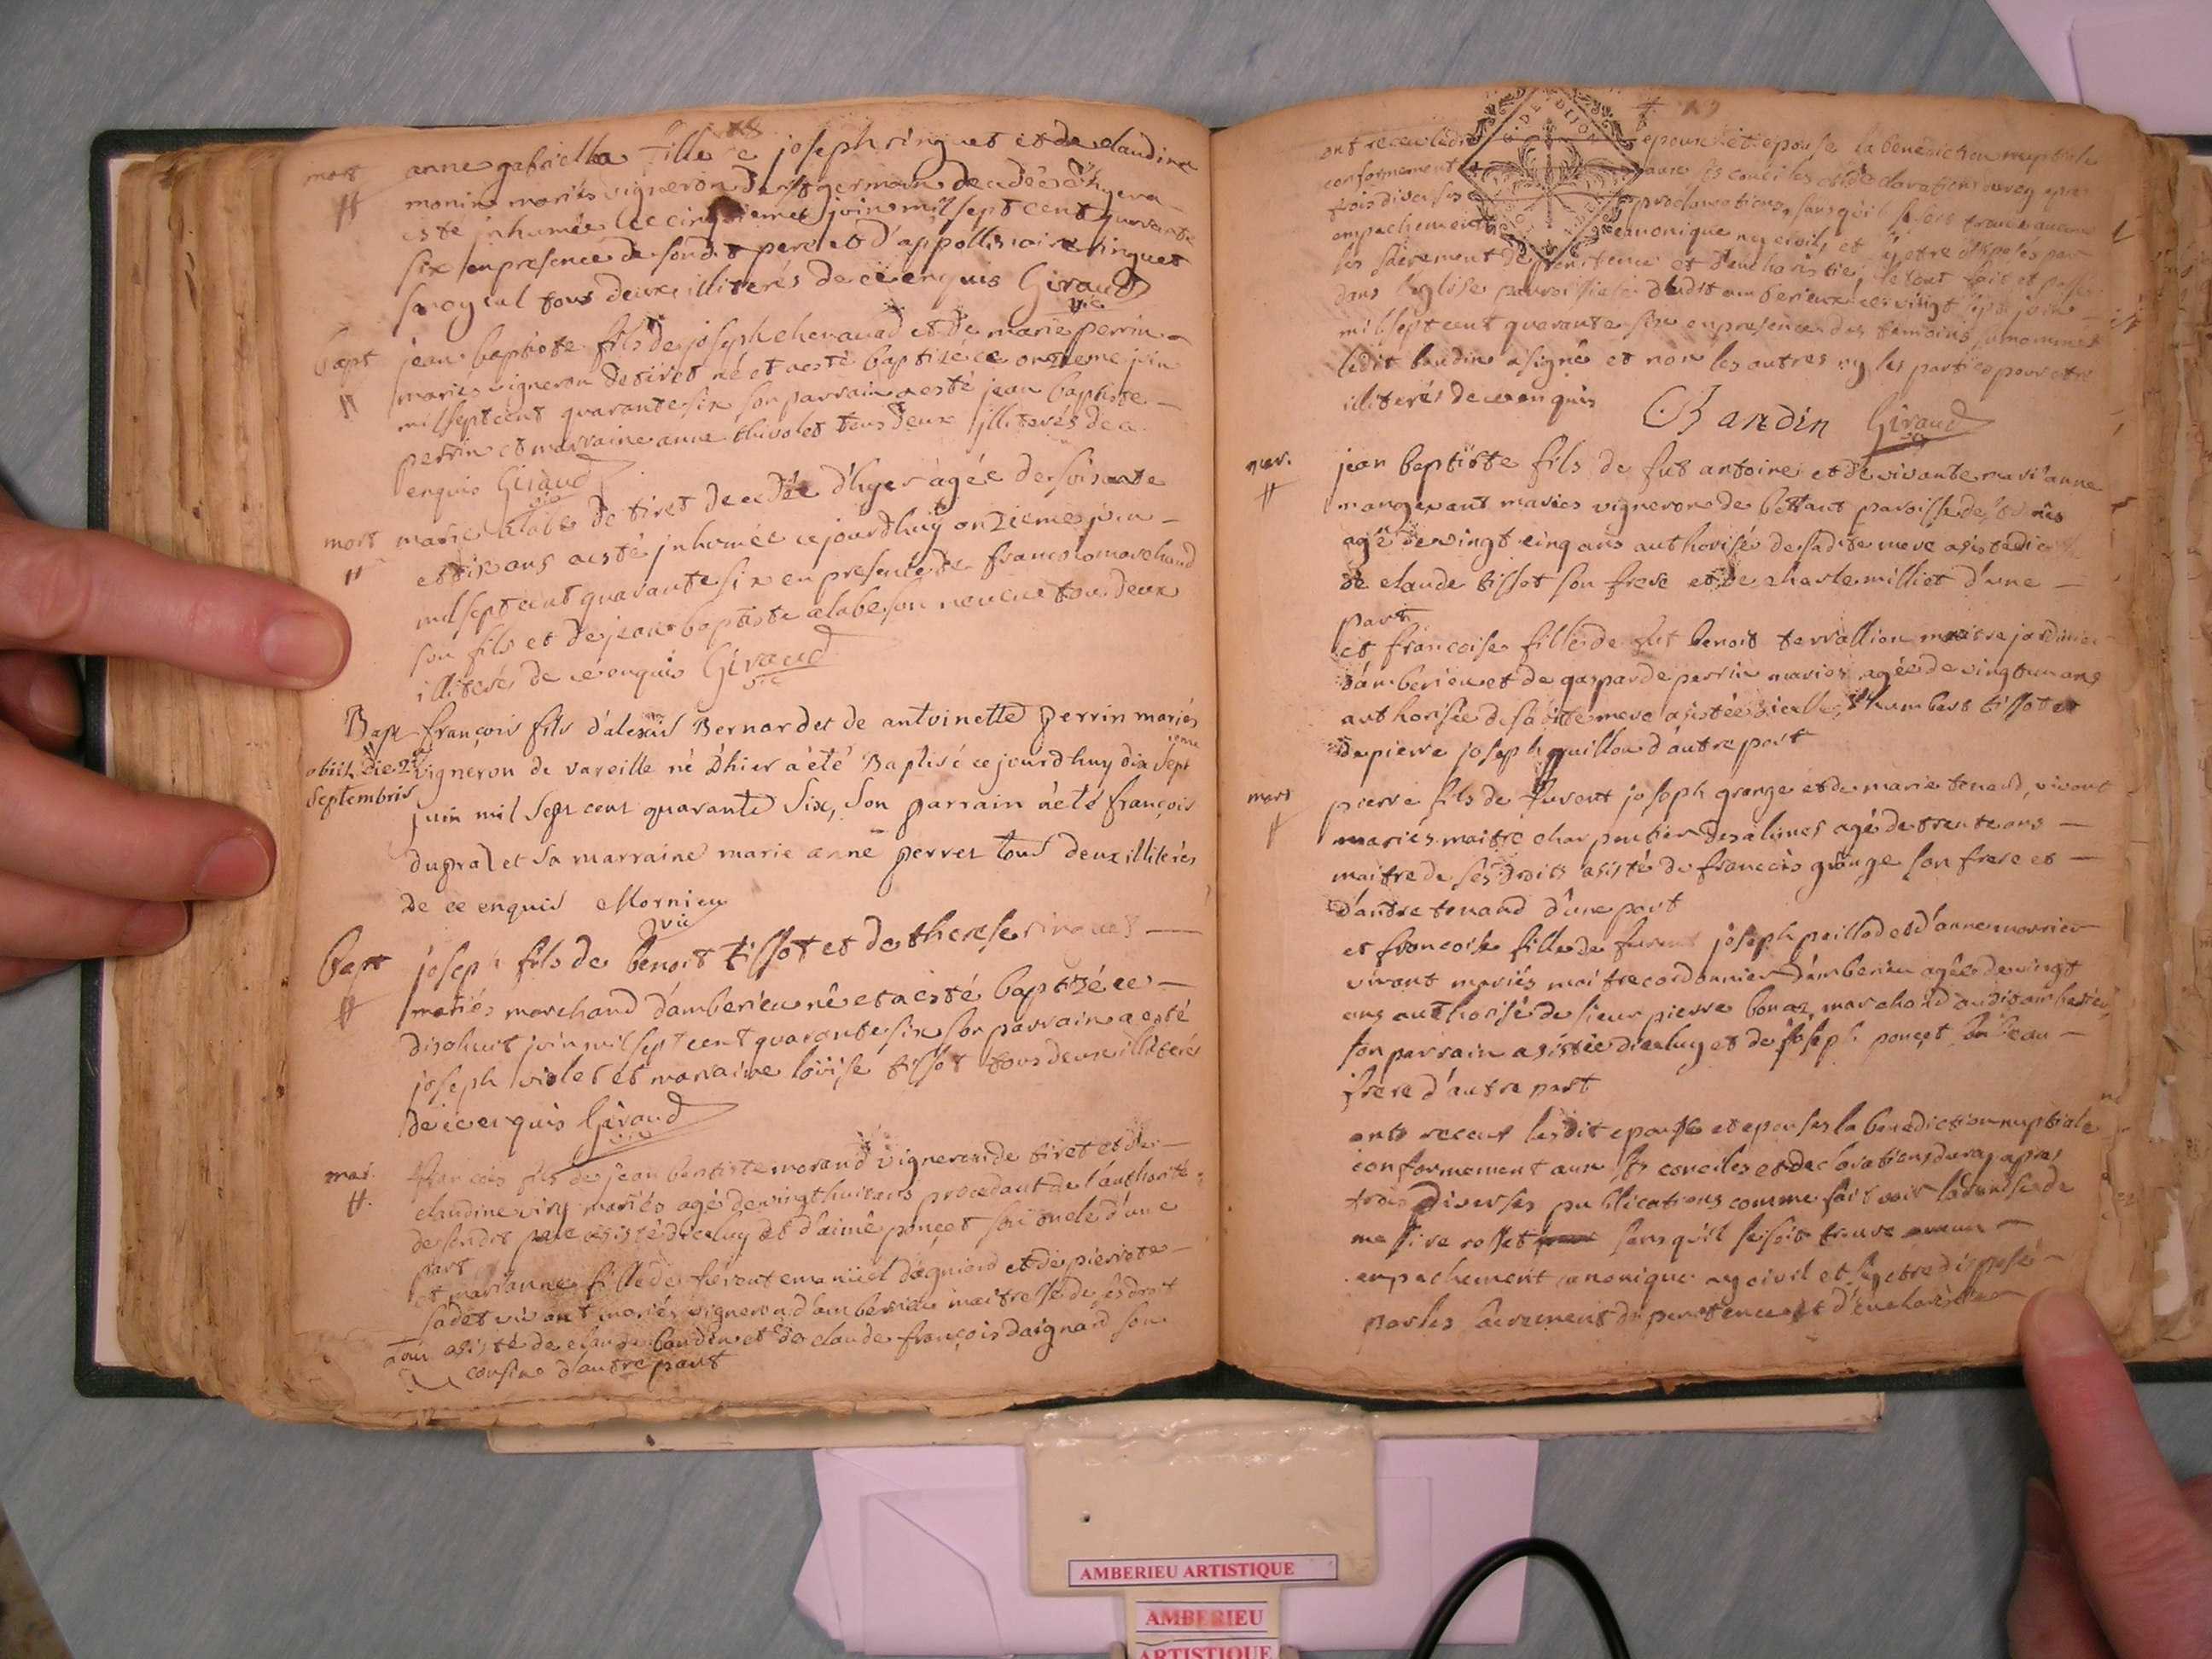 mort anne gabrielle fille de joseph ringuet et de claudine
monin mariés vigneron de st germain decedée d'hyer a
esté inhumée ce cinquieme juin mil sept cent quarante
six en presence de sondit pere et d'appollinaire ringuet
tous deux illiterés de ce enquis Giraud
vic
bapt jean baptiste fils de joseph chenavad et de marie perrin
mariés vigneron de tiret né et a esté baptizé ce onzieme juin
mil sept cent quarante six son parrain a esté jean baptiste
perrin et marraine anne thivolet tous deux illiterés de ce
enquis Giraud
vic
mort marie de tiret decedée d'hyer agée de soisente
et dix ans a esté inhumée ce jourdhuy onzieme juin
mil sept cent quarante six en presence de francois marchand
son fils et de jean baptiste son neveu tous deux
illiterés de ce enquis Giraud
vic
Bapt françois fils d'alexis Bernard et de antoinette perrin mariés
obiit die 25 vigneron de vareille né d'hier a été Baptisé ce jourd'huy dix sept
ieme
septembris juin mil sept cent quarante six, son parrain a été françois
dupraz et sa marraine marie anne perret tous deux illiterés
de ce enquis Mornieu
vic
bapt joseph fils de benoit tissot et de therese ringuet
mariés marchand d'amberieu né et a esté baptizé ce
dixhuit juin mil sept cent quarante six son parrain a esté
joseph violet et marraine loüise tissot tous deux illiterés
de ce enquis Giraud
vic
mar. francois fils de jean baptiste morand vigneron de tiret et de
claudine viry mariés agé de vingt huit ans procedant de l'authorité
de sondit pere asisté d'iceluy et d'aimé ponçet son oncle d'une
part
et marianne fille de furent emanüel dagniard et de pierrete
sadet vivant mariés vigneron d'amberieu maitresse de ses droit
asisté de claude baudin et de claude françois daignard son
cousin d'autre part
ont receu lesdit epoux et epouse la benediction nuptiale
conformement aux sts conciles et declarations du roy apres
trois diverses proclamations, sans qu'il se soit trouvé aucun
empechement canonique ny civil, et s'y etre disposés par
les sacrement de penitence et d'eucharistie, le tout fait et passé
dans l'eglise parroissiale dudit amberieu ce vingt sept juin
mil sept cent quarante six en presence des temoins sunommés
ledit baudin a signé et non les autres ny les parties pour etre
illiterés de ce enquis Baudin Giraud
vic
mar. jean baptiste fils de fut antoine et de vivante mari anne
mangevant mariés vigneron de bettant paroisse de st
agé de vingt cinq ans authorisé de sadite mere asisté d'icelle
de claude tissot son frere et de charle milliet d'une
part
et francoise fille de fut benoit terrallion maitre jardinier
d'amberieu et de gasparde perrin mariés agée de vingt un ans
authorisée de sadite mere asistée d'icelle, d'humbert tissot et
de pierre joseph guillon d'autre part
mar. pierre fils de furent joseph grange et de marie tenand, vivant
mariés maitre charpentier des alimes agé de trente ans
maitre de ses droits asisté de francois grange son frere et
d'andre tenand d'une part
et francoise fille de furent joseph paillod et d'anne morrier
vivant mariés maitre cordonnier d'amberieu agée de vingt
ans authorisé de sieur pierre bonaz, marchand audit amberieu,
son parrain asistée d'iceluy et de joseph ponçet son beau
frere d'autre part
onts receus lesdit epoux et epouses la benediction nuptiale
conformement aux sts conciles et declarations du roy apres
trois diverses publications comme fait voir la remise de
messire rosset sans qu'il se soit trouvé aucun
empechement canonique ny civil et s'y etre disposé
par les sacrement de penitence et d'eucharistie
AMBERIEU ARTISTIQUE
AMBERIEU
ARTISTIQUE